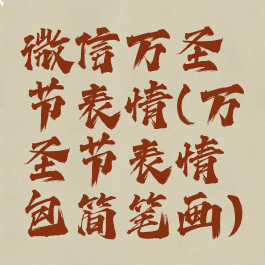 微信万圣
节表情(万
圣节表情
包简笔画)